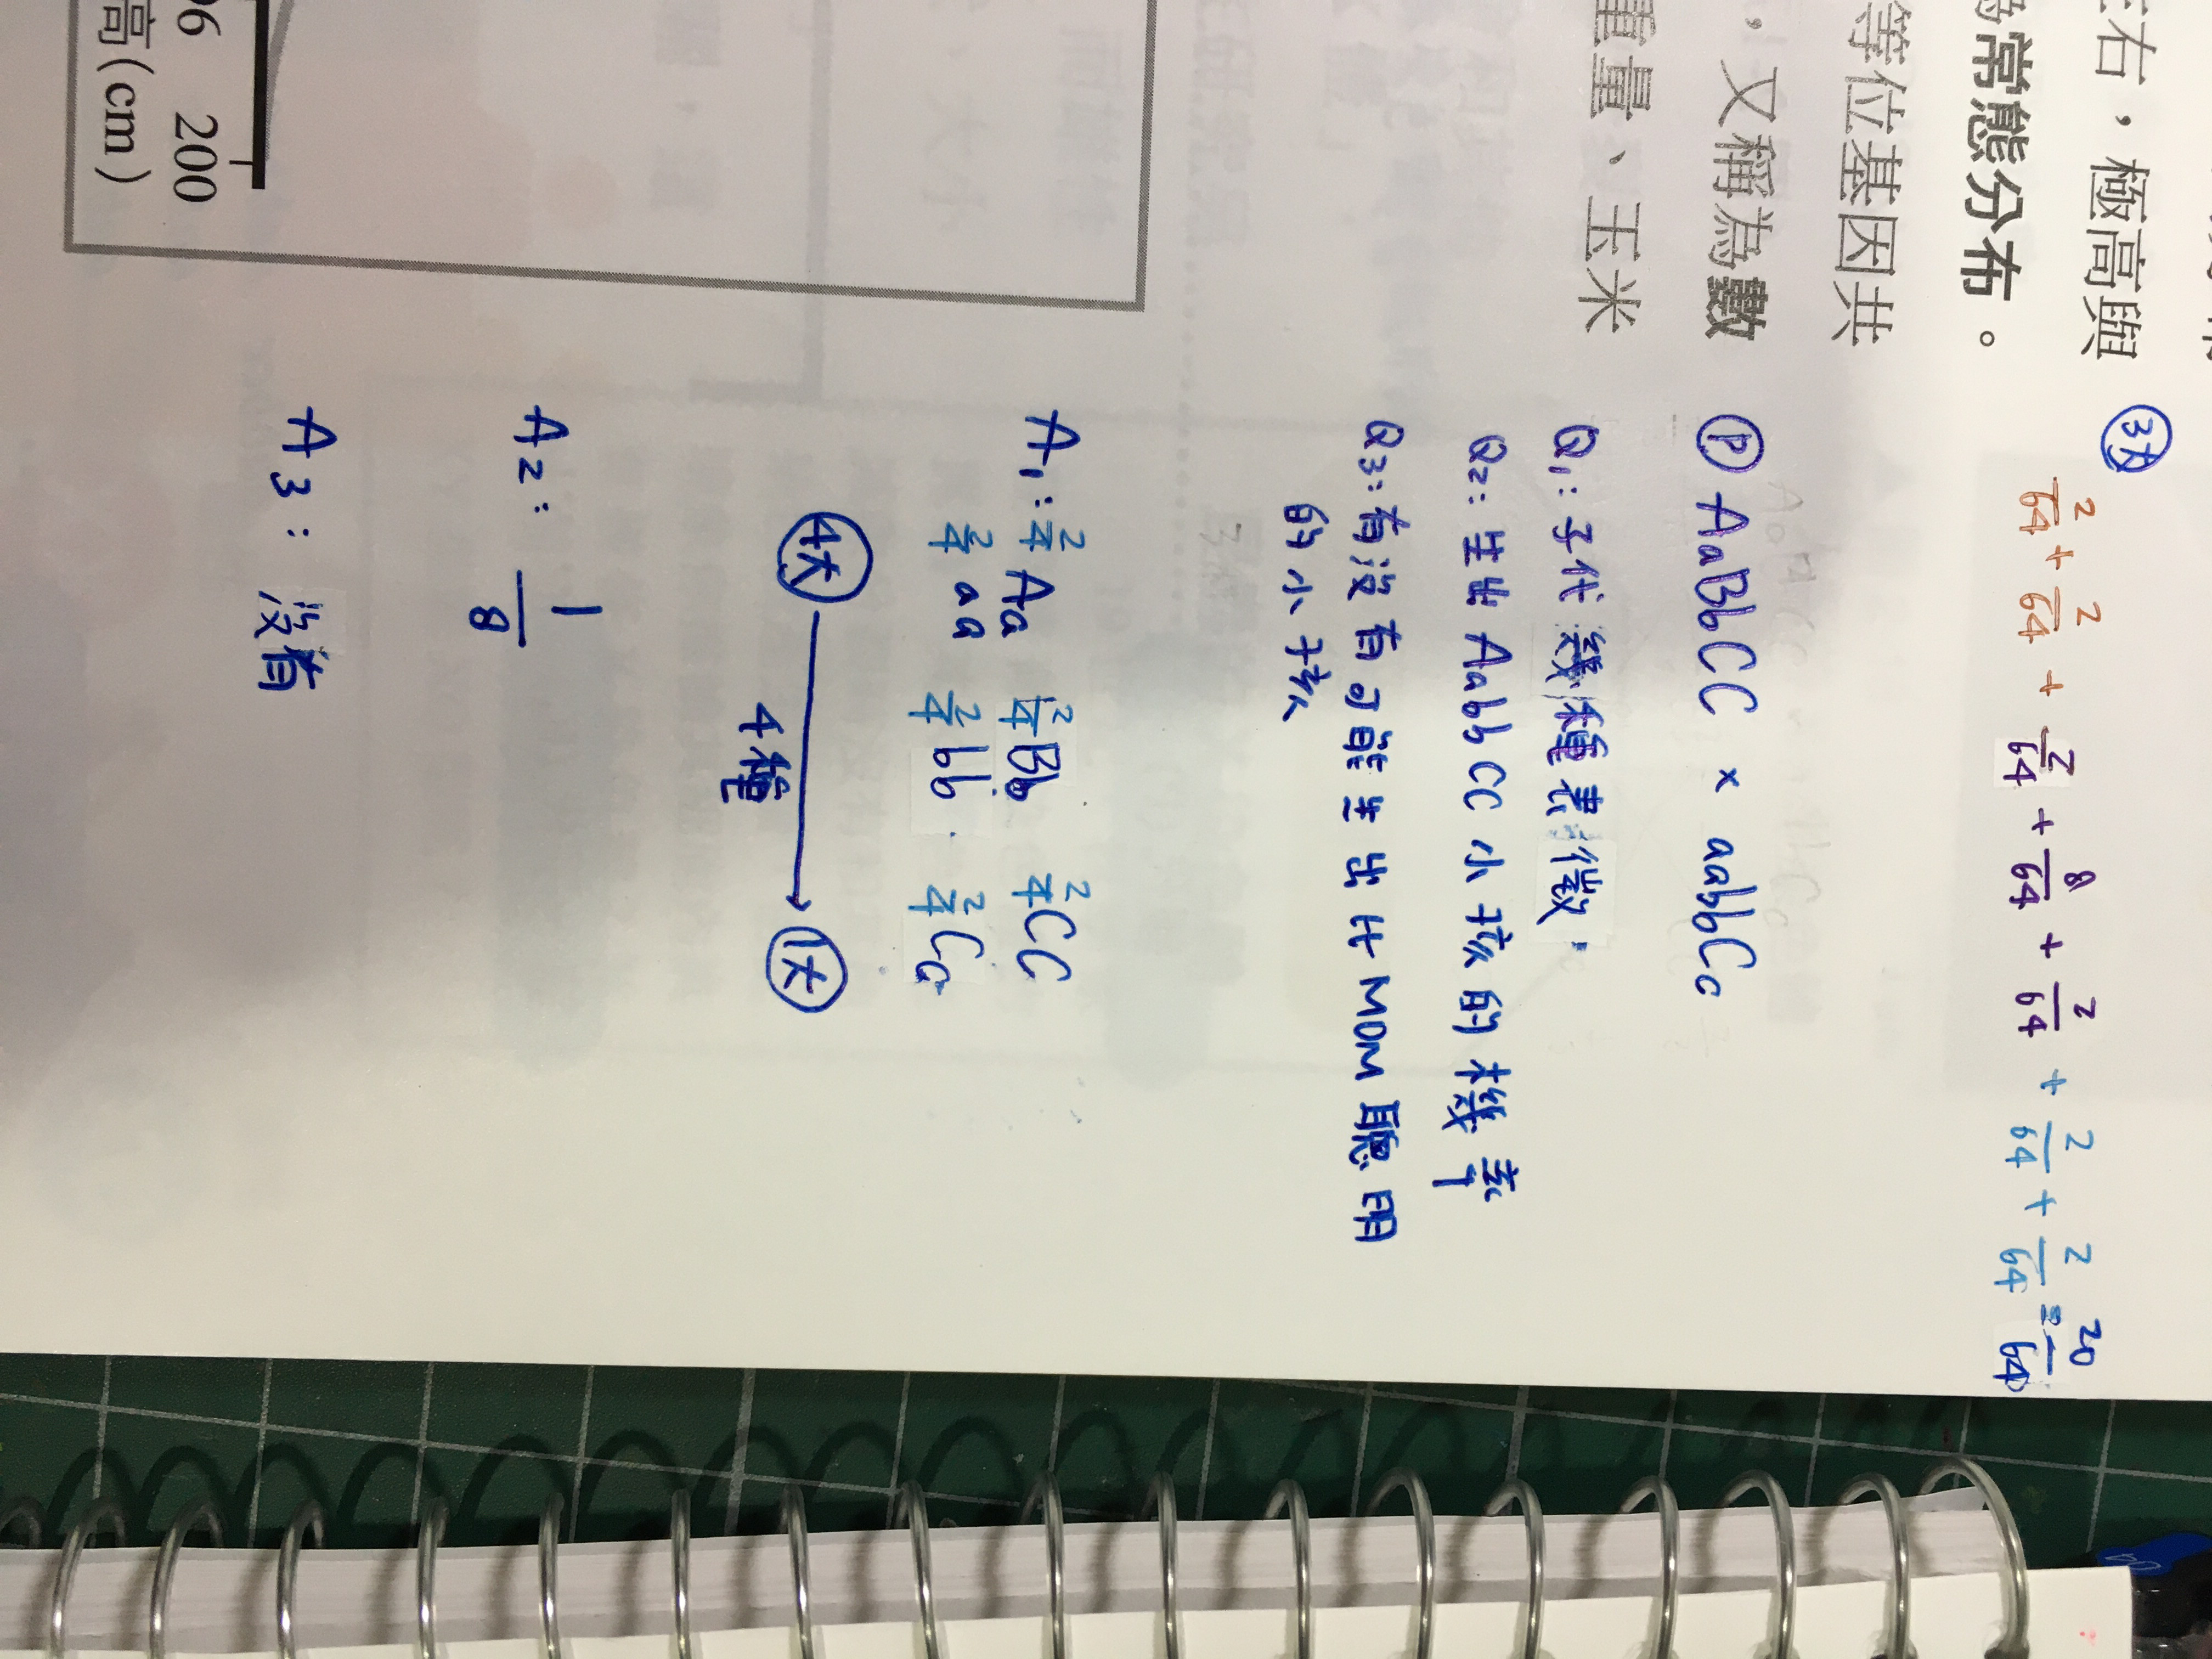 左右，極高與
常態分布。
等位基因共
，又稱為數
重量、玉米
200
高(cm)
3大
2/64 + 2/64 + 2/64 + 8/64 + 2/64 + 2/64 + 2/64 = 20/64
P AaBbCC × aabbCc
Q1：子代幾種表徵.
Q2：生出 AabbCC 小孩的機率
Q3：有沒有可能生出比MOM聰明
的小孩
A1：2/4 Aa 2/4 Bb 2/4 CC
2/4 aa 2/4 bb 2/4 Cc
4大 → 1大
4種
A2： 1/8
A3： 沒有